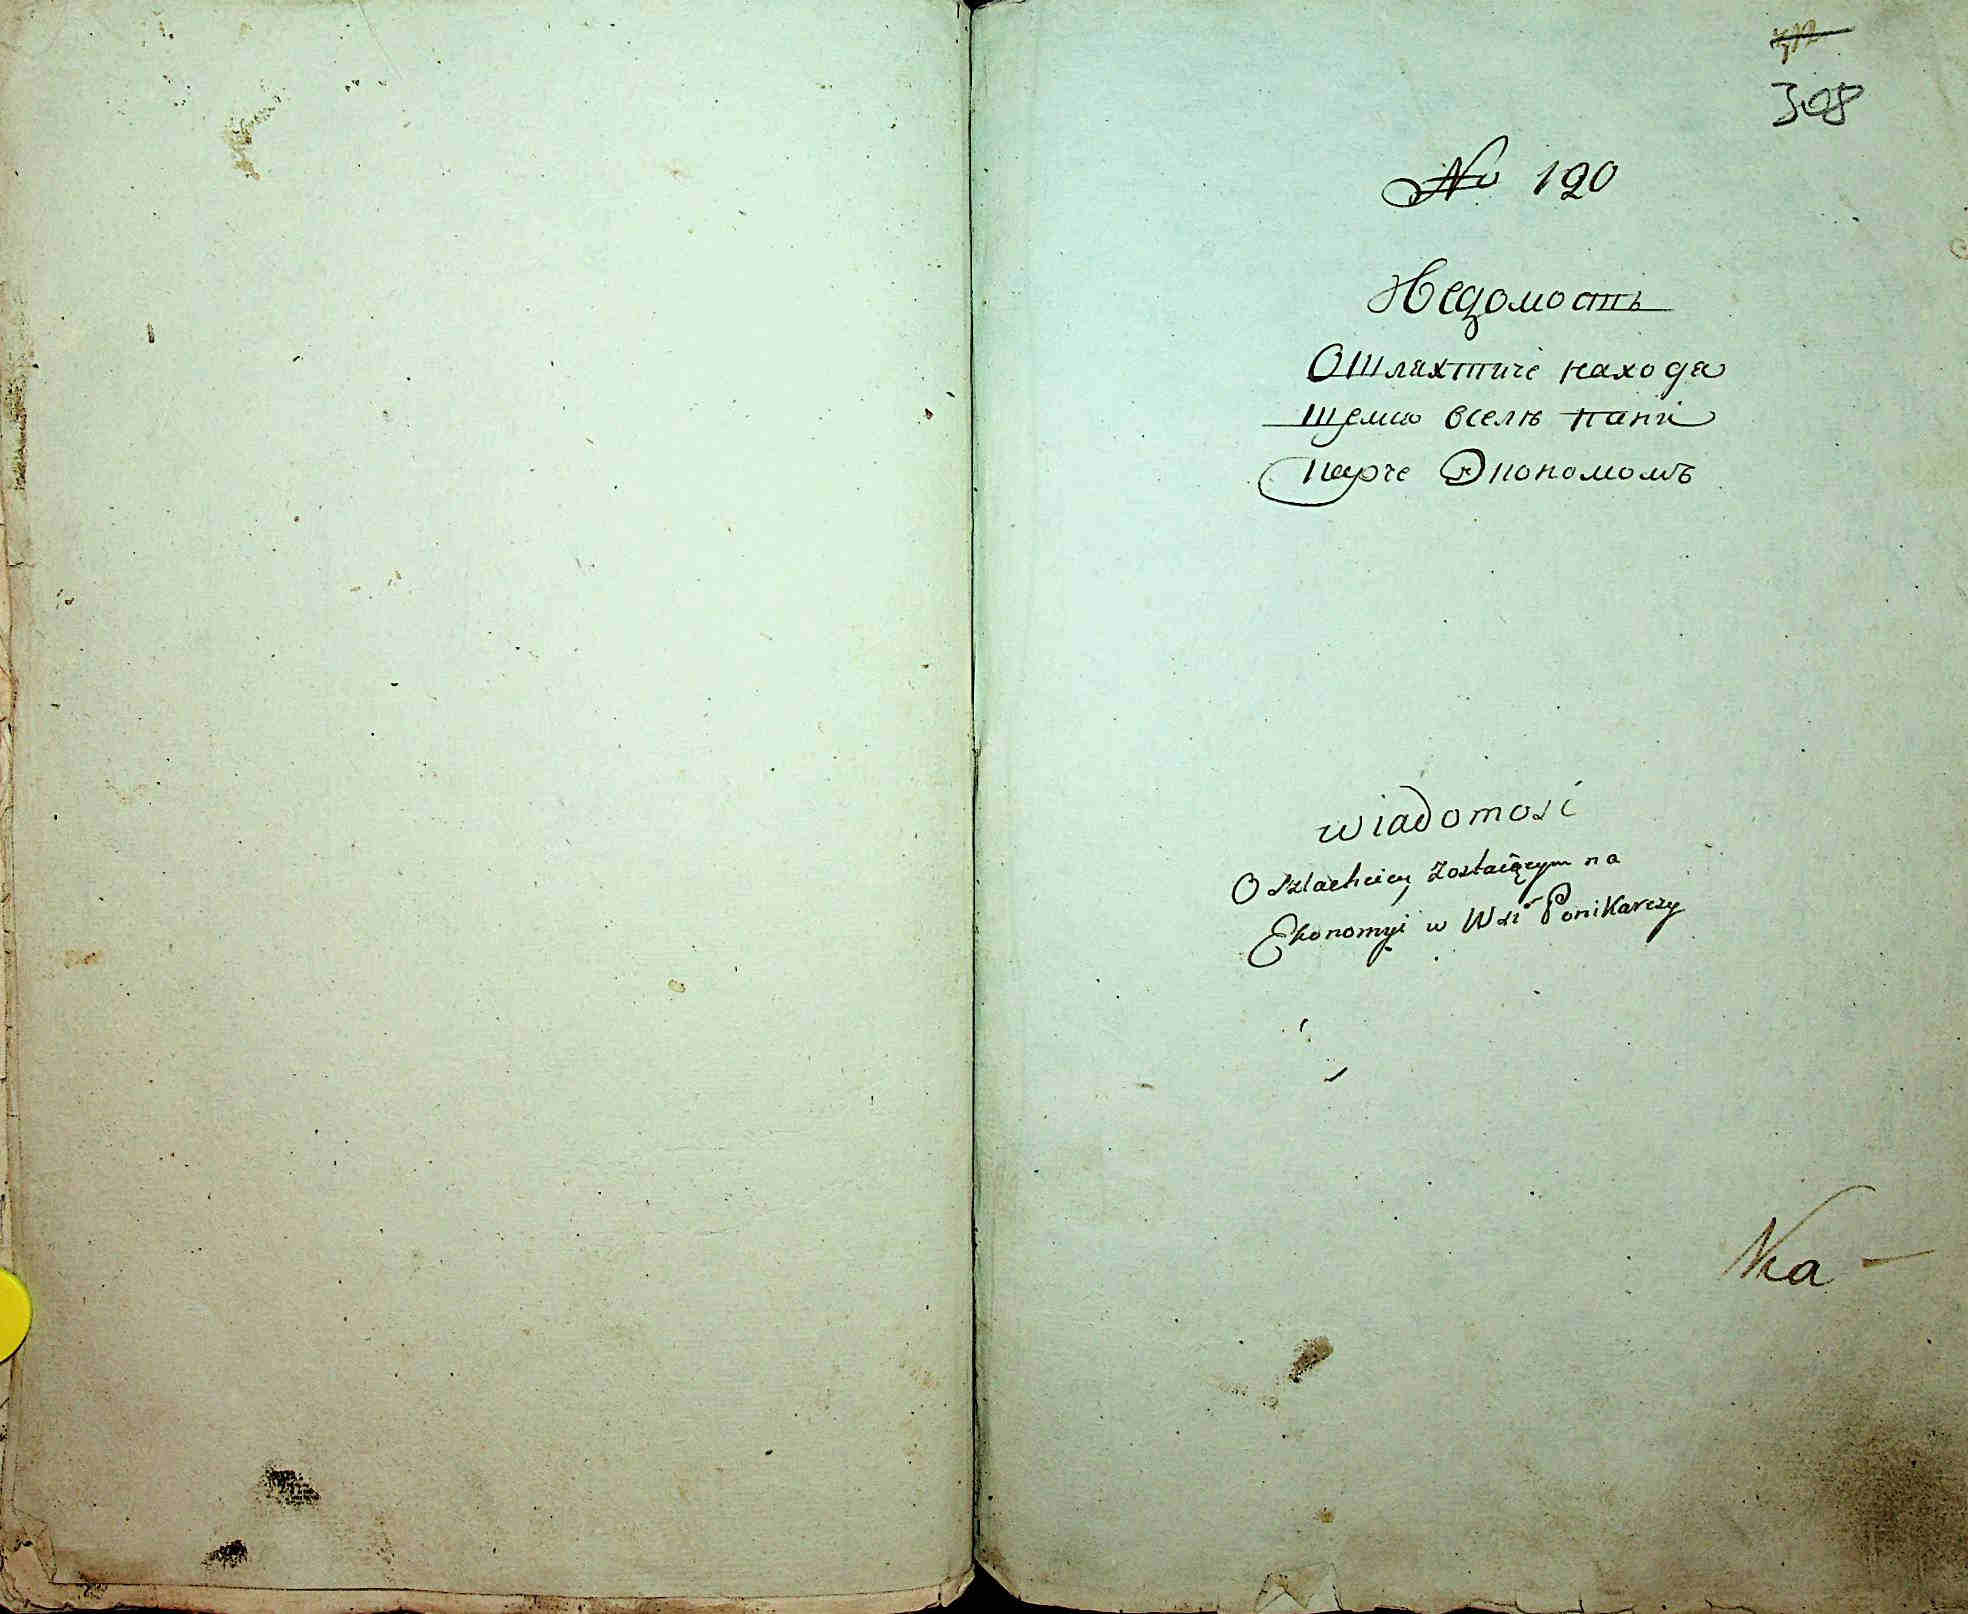 308
No 120
Ведомость
О Шляхтиче находя
щемся в селѣ пани
Экономомъ
wiadomość
O szlachcicu zostaiącym na
Ekonomyi w Wsi Ponikarczy